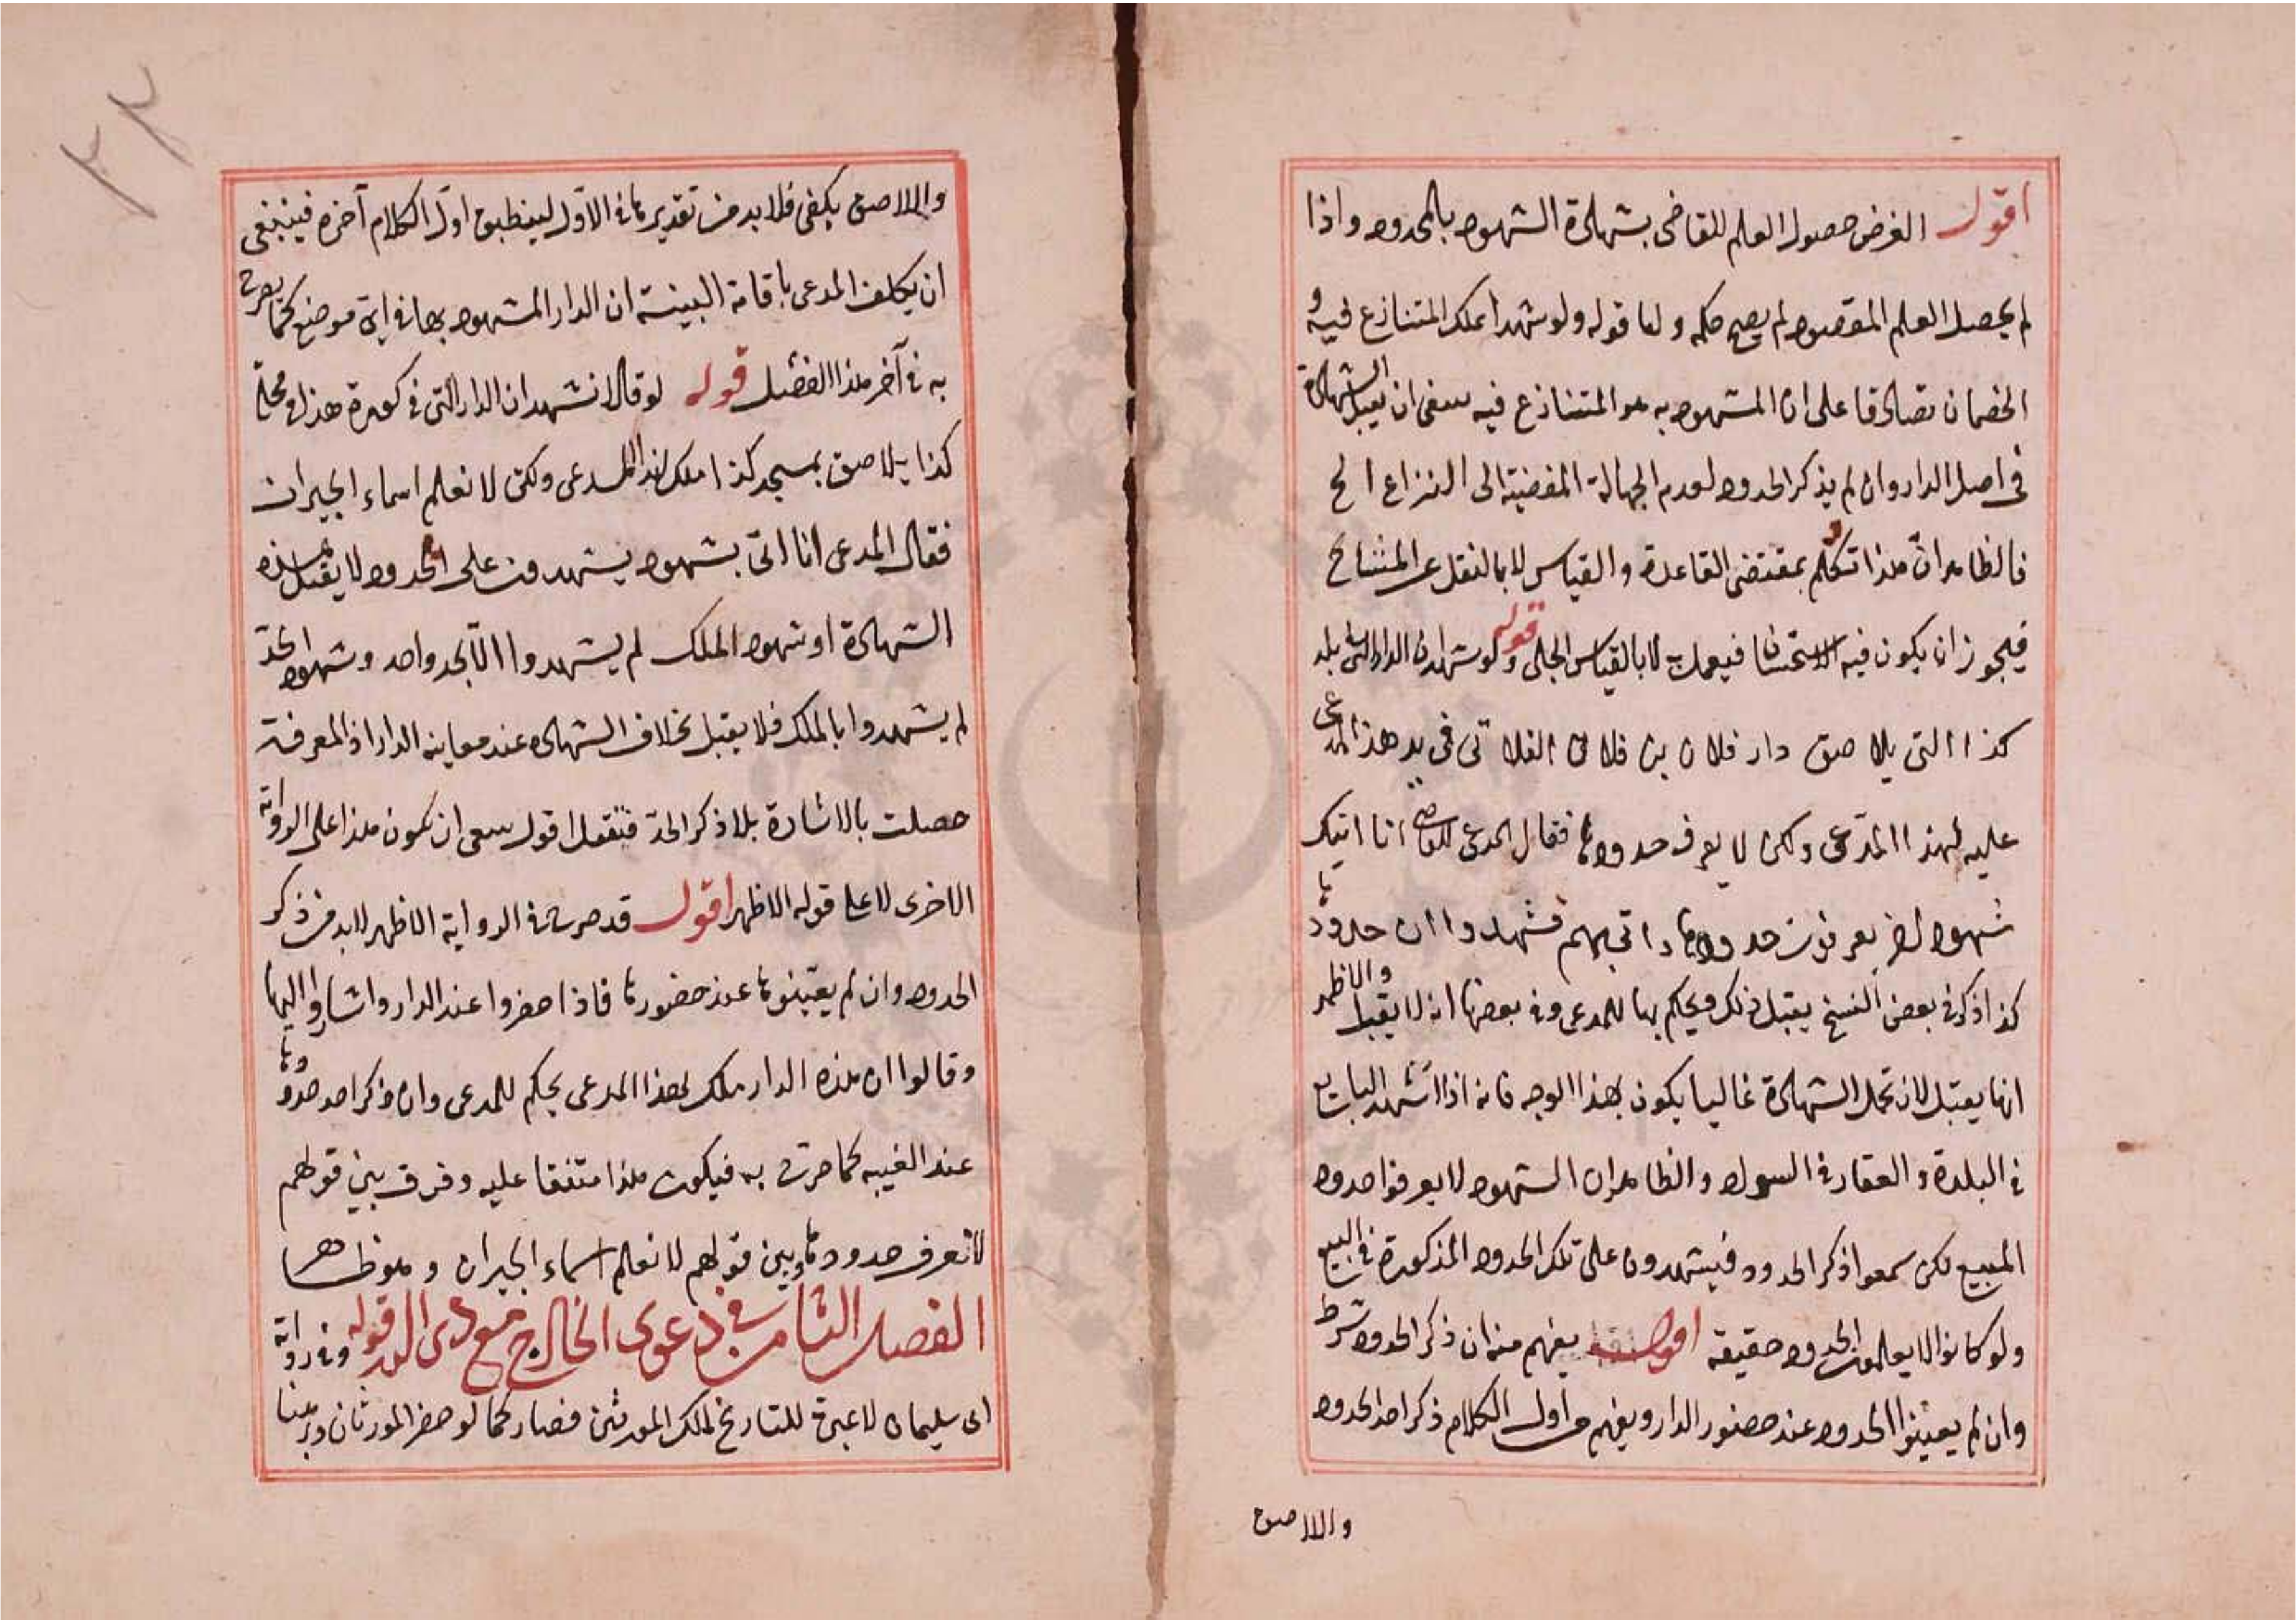 اقول الغرض حصول العلم للقاضى بشهادة الشهود بالحدود واذا
لم يحصل العلم المقصود لم يصح حكمه واما قوله ولو شهدا بملك المتنازع فيه و
الخصمان تصادقا على ان المشهود به هو المتنازع فيه ينبغى ان يقبل الشهادة
فى اصل الدار وان لم يذكر الحدود لعدم الجهالة المفضية الى النزاع الخ
فالظاهر انّ هذا تكلّم بمقتضى القاعدة والقياس لا بالنقل عن المشايخ
فيجوز ان يكون فيه الاستحسان فيعمل به لا بالقياس الجلى قوله ولو شهدا ان الدار التى فى بلد
كذا التى يلاصق دار فلان بن فلان الفلانى فى يد هذا المدعى
عليه لهذا المدّعى ولكن لا يعرف حدودها فقال المدعى للقاضى انا اتيك
شهود اخر يعرفون حدودها واتى بهم فشهدوا ان حدودها
كذا ذكر فى بعض النسخ يقبل ذلك ويحكم بها للمدعى وفى بعضها انه لا يقبل والاظهر
انها يقبل لان تحمل الشهادة غاليا يكون بهذا الوجه فانه اذا اشهد البايع
فى البلدة والعقار فى السواد والظاهر ان الشهود لا يعرفوا حدود
المبيع لكن سمعوا ذكر الحدود فيشهدون على تلك الحدود المذكورة فى البيع
ولو كانوا لا يعلمون الحدود حقيقة اقول يفهم منه ان ذكر الحدود شرط
وان لم يعينوا الحدود عند حضور الدار ويفهم من اول الكلام ذكر احد الحدود
والاصق
٢٢
والالاصق يكفى فلابد من تقدير ها فى الاوّل لينطبق اول الكلام آخره فينبغى
ان يكلف المدعى باقامة البينة ان الدار المشهود بها فى اىّ موضع كما يصرح
به فى آخر هذا الفصل قوله لو قالا نشهد ان الدار التى فى كورة هذا فى محلة
كذا يلاصق بمسجد كذا ملك لهذا المدعى ولكن لا نعلم اسماء الجيران
فقال المدعى انا اتىّ بشهود يشهدون على الحدود لا يقبل هذه
الشهادة اذ شهود الملك لم يشهدوا الّا بحد واحد وشهود الحدّ
لم يشهدوا بالملك فلا يقبل بخلاف الشهادة عند معاينة الدار اذ المعرفة
حصلت بالاشارة بلا ذكر الحدّ فتقبل اقول ينبغى ان يكون هذا على الرواية
الاخرى لا على قوله الاظهر اقول قد صرح فى الرواية الاظهر لابد من ذكر
الحدود وان لم يعيّنوها عند حضورها فاذا حضروا عند الدار واشاروا اليها
وقالوا ان هذه الدار ملك لهذا المدعى يحكم للمدعى وان ذكر احد حدودها
عند الغيبه كما صرح به فيكون هذا متفقا عليه وفرق بين قولهم
لا نعرف حدودها وبين قولهم لا نعلم اسماء الجيران وهو ظاهر
الفصل الثامن فى دعوى الخارج مع ذى اليد قوله وفى رواية
ابى سليمان لا عبرة للتاريخ لملك المورثين فصار كما لو حضر المورثان وبرهنا